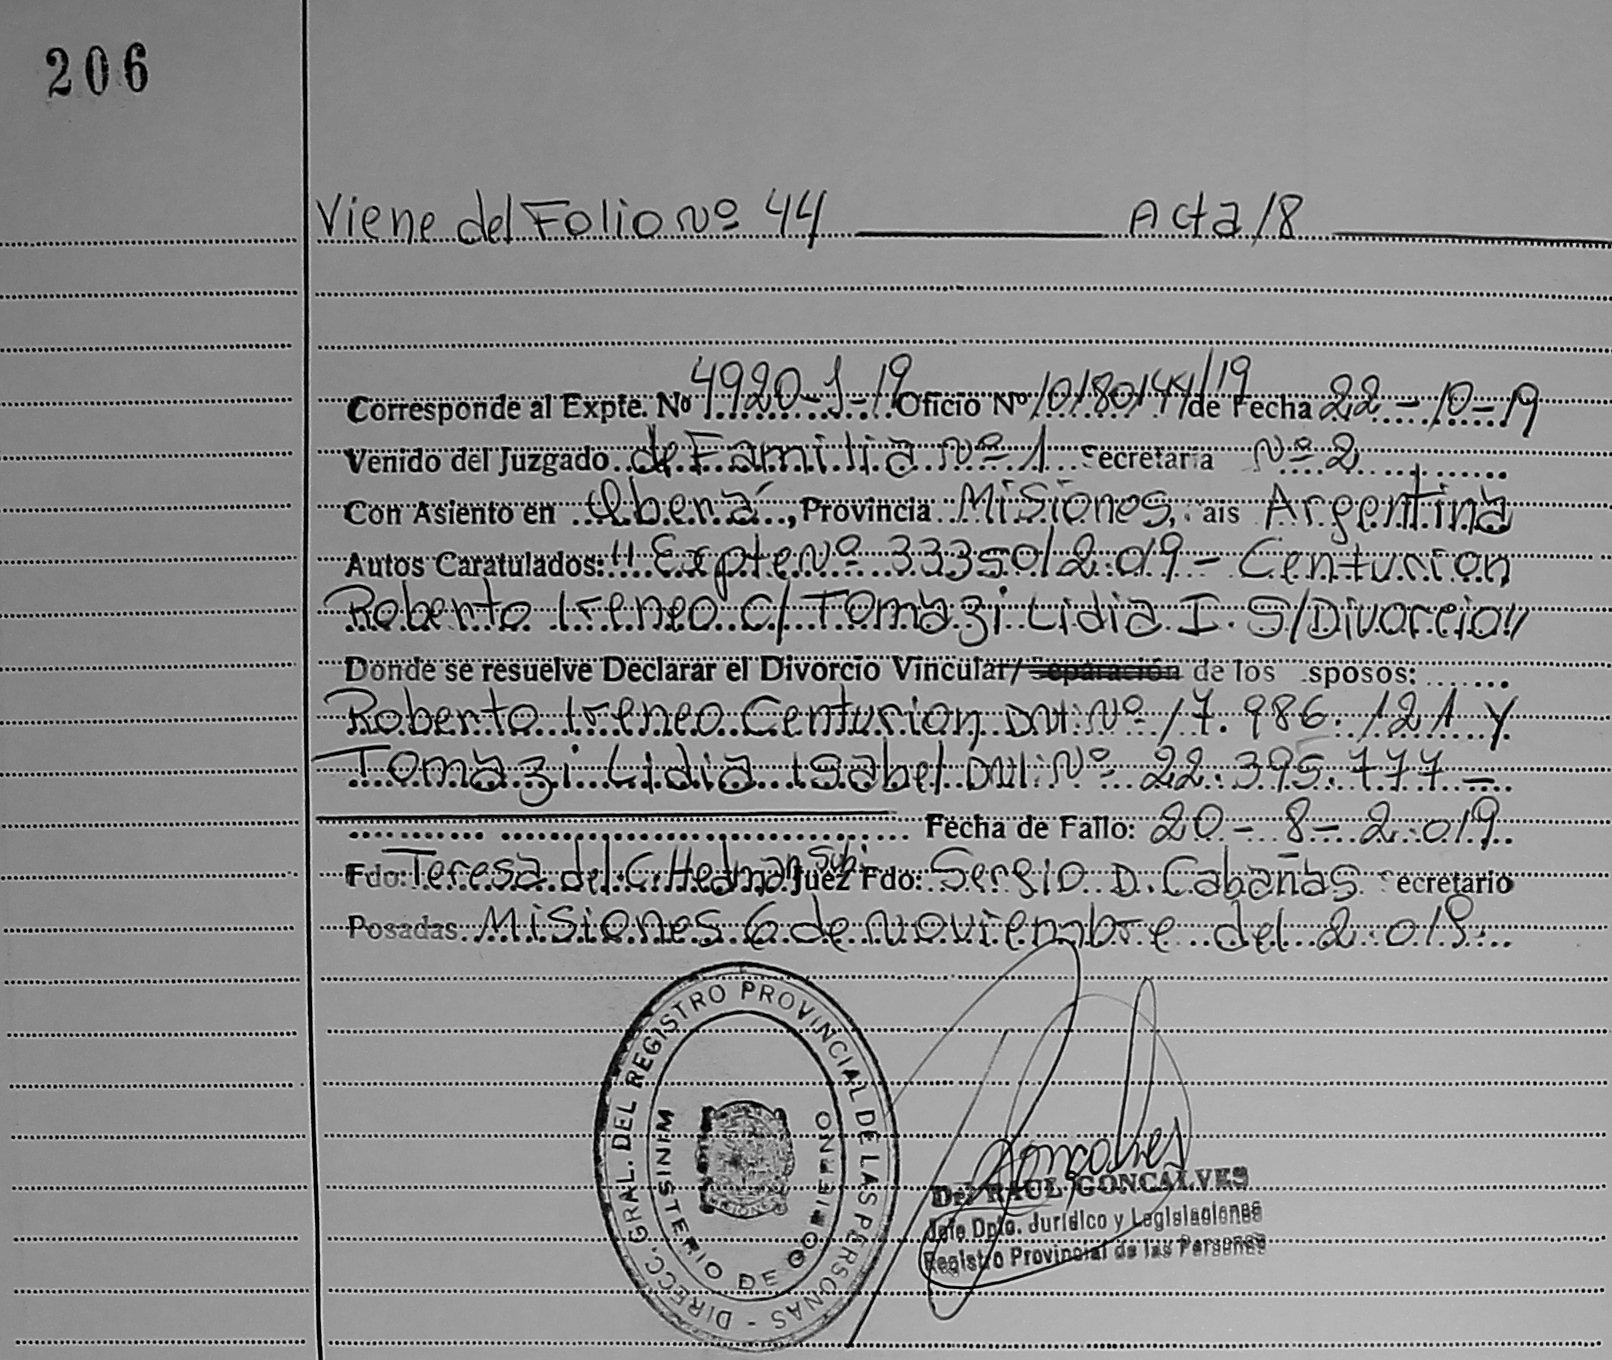 206
Viene del Folio Nº 44 Acta 18
Corresponde al Expte. Nº 4920-J-19 Oficio Nº 10180144/19 de Fecha 22-10-19
Venido del Juzgado de Familia Nº 1 Secretaría Nº 2
Con Asiento en Oberá, Provincia Misiones, País Argentina
Autos Caratulados: "Expte Nº 33350/2.019 - Centurion
Roberto Ireneo C/ Tomazi Lidia I. S/Divorcio"
Donde se resuelve Declarar el Divorcio Vincular/Separación de los Esposos:
Roberto Ireneo Centurion DNI: Nº 17.986.121 Y
Tomazi Lidia Isabel DNI: Nº 22.395.777 -
Fecha de Fallo: 20-8-2.019
Fdo: Teresa del C. Subí Juez Fdo: Sergio D. Cabañas Secretario
Posadas Misiones 6 de noviembre del 2.019
DIRECC. GRAL. DEL REGISTRO PROVINCIAL DE LAS PERSONAS -
MINISTERIO DE GOBIERNO
MISIONES
Goncalves
Del RAUL GONCALVES
Jefe Dpto. Jurídico y Legislaciones
Registro Provincial de las Personas